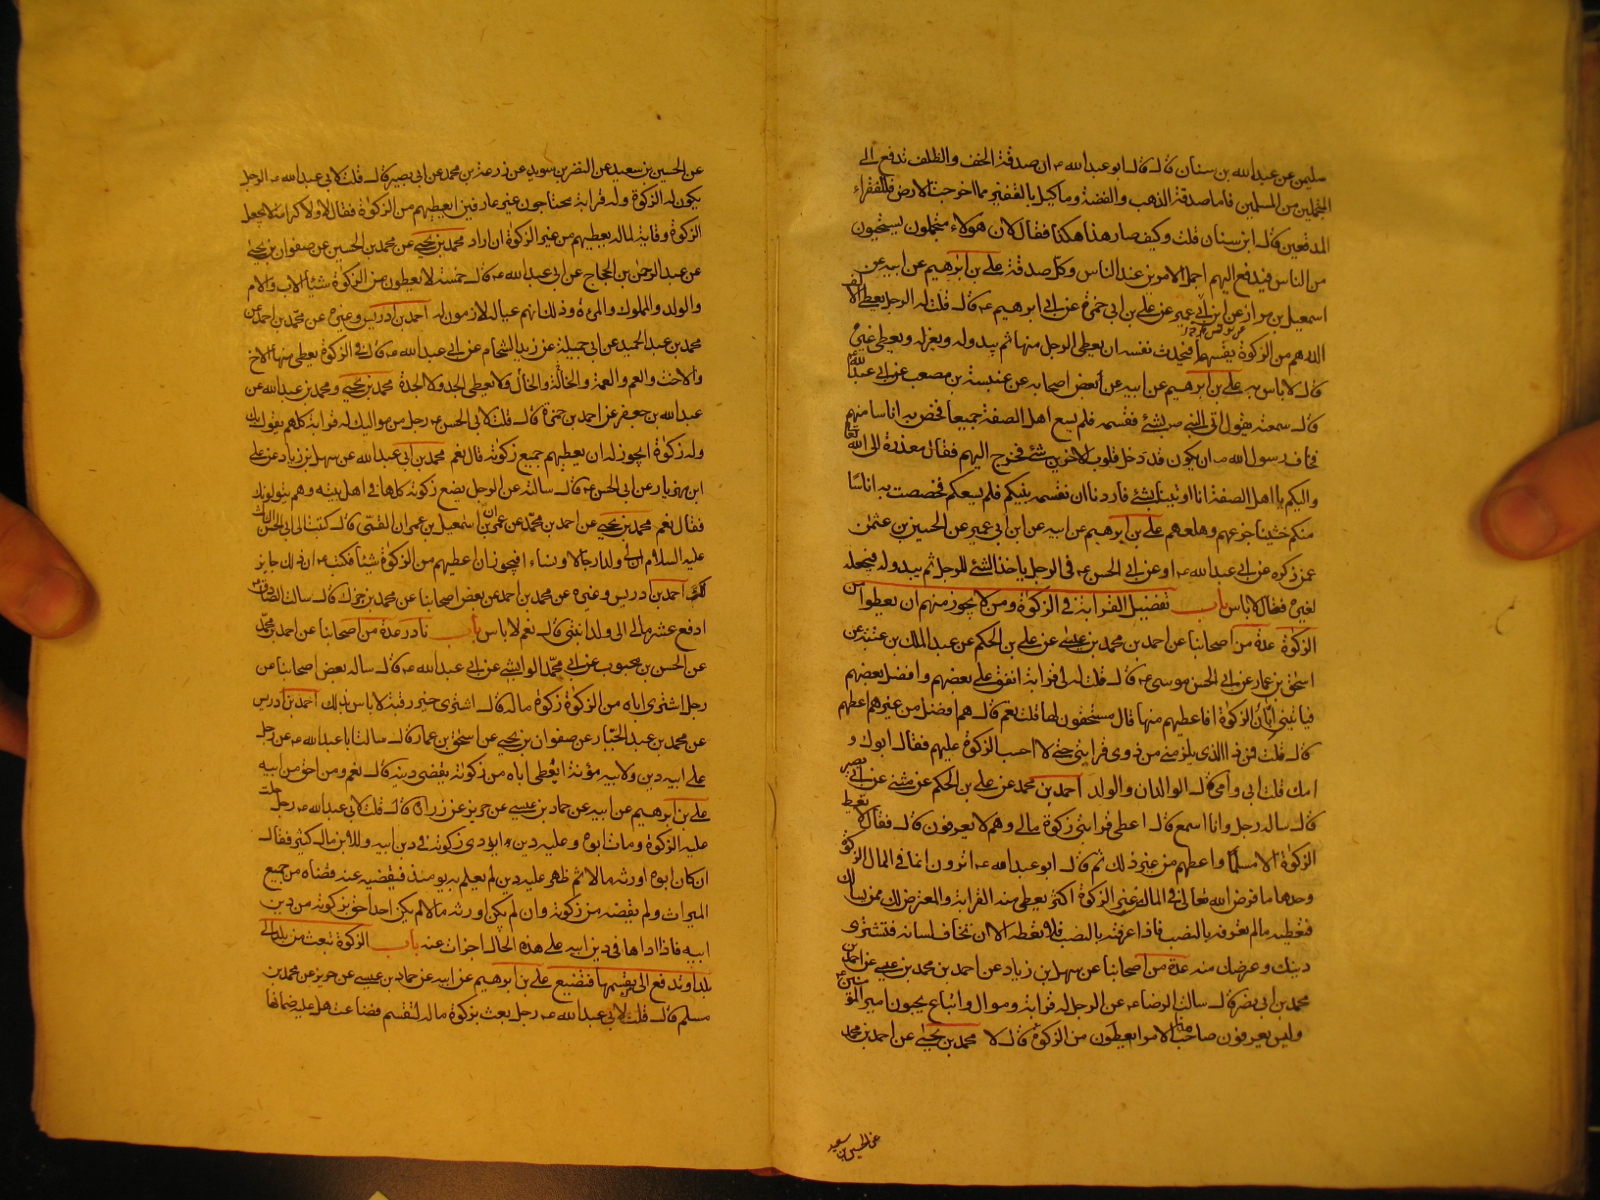 سليمن عن عبدالله بن سنان قال قال ابو عبدالله ان صدقة الخف والظلف تدفع الى
المتجملين من المسلمين فاما صدقة الذهب والفضة وما كيل بالقفيز مما اخرجت الارض فللفقراء
المدقعين قال ابن سنان قلت وكيف صار هذا هكذا فقال لان هولاء متجملون يستحيون
من الناس فيدفع اليهم اجمل الامرين عند الناس وكل صدقة على بن ابرهيم عن ابيه عن
اسمعيل بن مرار عن ابن ابى عمير عن على بن ابى حمزة عن ابى ابرهيم قال قلت له الرجل يعطى الالف
الدرهم من الزكوة يقسمها فيحدث نفسه ان يعطى الرجل منها ثم يبدو له ويعزله ويعطى غيره
قال لا باس به على بن ابرهيم عن ابيه عن بعض اصحابه عن عنبسة بن مصعب عن ابى عبدالله
قال سمعته يقول اتى النبى بشئ فقسمه فلم يسع اهل الصفة جميعا فخص به اناسا منهم
فخاف رسول الله ان يكون قد دخل قلوب الاخرين شئ فخرج اليهم فقال معذرة الى الله
واليكم يا اهل الصفة انا اوتينا بشئ فاردنا ان نقسمه بينكم فلم يسعكم فخصصت به اناسا
منكم خشينا جزعهم وهلعهم على بن ابرهيم عن ابيه عن ابن ابى عمير عن الحسين بن عثمن
عمن ذكره عن ابى عبدالله او عن ابى الحسن فى الرجل ياخذ الشئ للرجل ثم يبدو له فيجعله
لغيره فقال لا باس باب تفضيل القرابة فى الزكوة ومن لا يجوز منهم ان يعطوا من
الزكوة عدة من اصحابنا عن احمد بن محمد بن عيسى عن على بن الحكم عن عبدالملك بن عتبة عن
اسحق بن عمار عن ابى الحسن موسى قال قلت له لى قرابة انفق على بعضهم وافضل بعضهم
فياتينى ابان الزكوة افاعطيهم منها قال مستحقون لها قلت نعم قال هم افضل من غيرهم اعطهم
قال قلت فمن ذا الذى يلزمنى من ذوى قرابتى حتى لا احسب الزكوة عليهم فقال ابوك و
امك قلت ابى وامى قال الوالدان والولد احمد بن محمد عن على بن الحكم عن مثنى عن ابى بصير
قال ساله رجل وانا اسمع قال اعطى قرابتى زكوة مالى وهم لا يعرفون قال فقال لا تعط
الزكوة الا مسلما واعطهم من غير ذلك ثم قال ابو عبدالله اترون انما فى المال الزكوة
وحدها ما فرض الله تعالى فى المال من غير الزكوة اكثر يعطى منه القرابة والمعترض لك ممن يسالك
فتعطيه مالم تعرفه بالنصب فاذا عرفته بالنصب فلا تعطه الا ان تخاف لسانه فتشترى
دينك وعرضك منه عدة من اصحابنا عن سهل بن زياد عن احمد بن محمد بن عيسى عن احمد بن
محمد بن ابى نصر قال سالت الرضا عن الرجل له قرابة وموال واتباع يحبون امير المؤمنين
وليس يعرفون صاحب هذا الامر ايعطون من الزكوة قال لا محمد بن يحيى عن احمد بن محمد
عن الحسين بن سعيد
عن الحسين بن سعيد عن النضر بن سويد عن زرعة بن محمد عن ابى بصير قال قلت لابى عبدالله الرجل
يكون له الزكوة وله قرابة محتاجون غير عارفين ايعطيهم من الزكوة فقال لا ولا كرامة لا يجعل
الزكوة وقاية لماله يعطيهم من غير الزكوة ان اراد محمد بن يحيى عن محمد بن الحسين عن صفوان بن يحيى
عن عبدالرحمن بن الحجاج عن ابى عبدالله قال خمسة لا يعطون من الزكوة شيئا الاب والام
والولد والمملوك والمرءة وذلك انهم عياله لازمون له احمد بن ادريس وغيره عن محمد بن احمد عن
محمد بن عبدالحميد عن ابى جميلة عن زيد الشحام عن ابى عبدالله قال فى الزكوة يعطى منها الاخ
والاخت والعم والعمة والخال والخالة ولا يعطى الجد ولا الجدة محمد بن يحيى ومحمد بن عبدالله عن
عبدالله بن جعفر عن احمد بن حمزة قال قلت لابى الحسن رجل من مواليك له قرابة كلهم يقول بك
وله زكوة ايجوز له ان يعطيهم جميع زكوته قال نعم محمد بن ابى عبدالله عن سهل بن زياد عن على
ابن مهزيار عن ابى الحسن قال سالته عن الرجل يضع زكوته كلها فى اهل بيته وهم يتولونك
فقال نعم محمد بن يحيى عن احمد بن محمد عن عمران بن اسمعيل بن عمران القمى قال كتبت الى ابى الحسن الثالث
عليه السلام ان لى ولدا رجالا ونساء افيجوز ان اعطيهم من الزكوة شيئا فكتب ان ذلك جايز
لك احمد بن ادريس وغيره عن محمد بن احمد عن بعض اصحابنا عن محمد بن جزك قال سالت الصادق
ادفع عشر مالى الى ولد ابنتى قال نعم لا باس باب نادر عدة من اصحابنا عن احمد بن محمد
عن الحسن بن محبوب عن ابى محمد الوابشى عن ابى عبدالله قال ساله بعض اصحابنا عن
رجل اشترى اباه من الزكوة زكوة ماله قال اشترى خير رقبة لا باس بذلك احمد بن ادريس
عن محمد بن عبدالجبار عن صفوان بن يحيى عن اسحق بن عمار قال سالت ابا عبدالله عن رجل
على ابيه دين ولابيه مؤنة ايعطى اباه من زكوته يقضى دينه قال نعم ومن احق من ابيه
على بن ابرهيم عن ابيه عن حماد بن عيسى عن حريز عن زرارة قال قلت لابى عبدالله رجل حلت
عليه الزكوة ومات ابوه وعليه دين ايودى زكوته فى دين ابيه وللابن مال كثير فقال
ان كان ابوه اورثه مالا ثم ظهر عليه دين لم يعلم به يومئذ فيقضيه عنه قضاه من جميع
الميراث ولم يقضه من زكوته وان لم يكن اورثه مالا لم يكن احد احق بزكوته من دين
ابيه فاذا اداها فى دين ابيه على هذه الحال اجزات عنه باب الزكوة تبعث من بلد الى
بلد او تدفع الى من يقسمها فتضيع على بن ابرهيم عن ابيه عن حماد بن عيسى عن حريز عن محمد بن
مسلم قال قلت لابى عبدالله رجل بعث بزكوة ماله لتقسم فضاعت هل عليه ضمانها